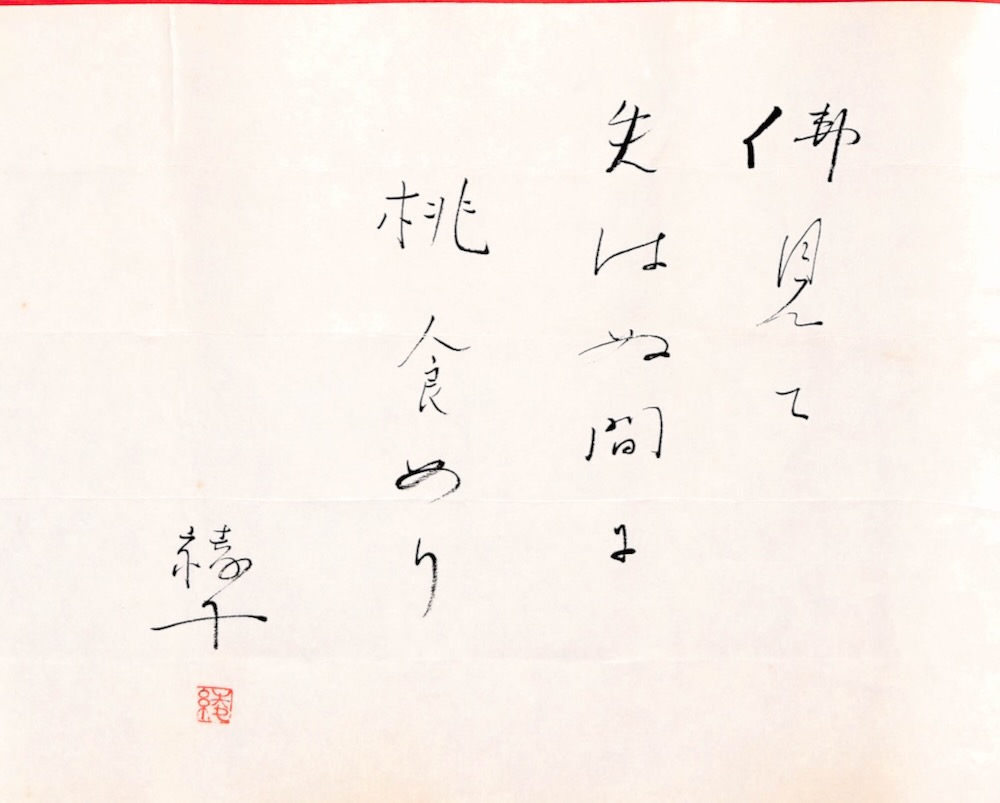 佛見て
失はぬ間に
桃食めり
綾子
綾